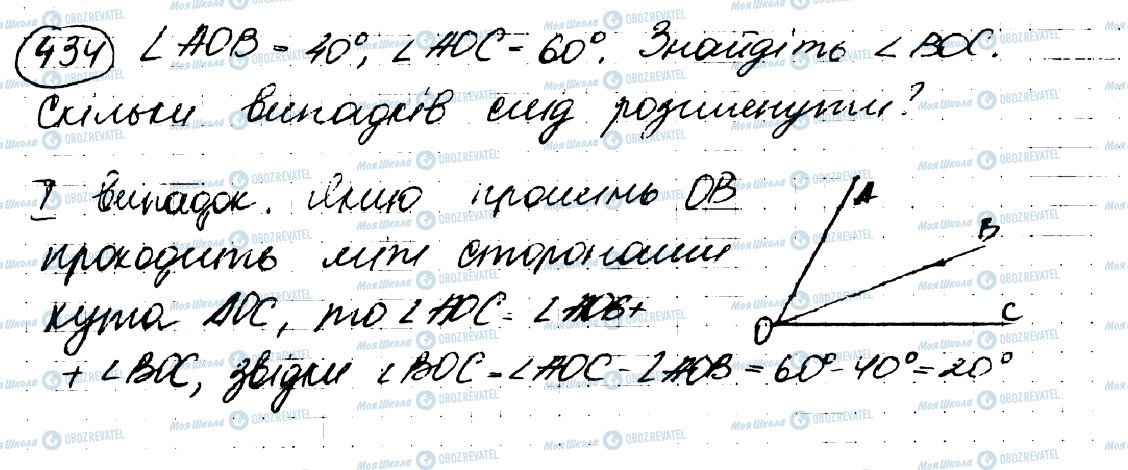 434 ∠AOB = 40°, ∠AOC = 60°. Знайдіть ∠BOC.
Скільки випадків слід розглянути?
I випадок. Якщо промінь OB
проходить між сторонами
кута AOC, то ∠AOC = ∠AOB +
+ ∠BOC, звідки ∠BOC = ∠AOC - ∠AOB = 60° - 40° = 20°
A
B
O
C